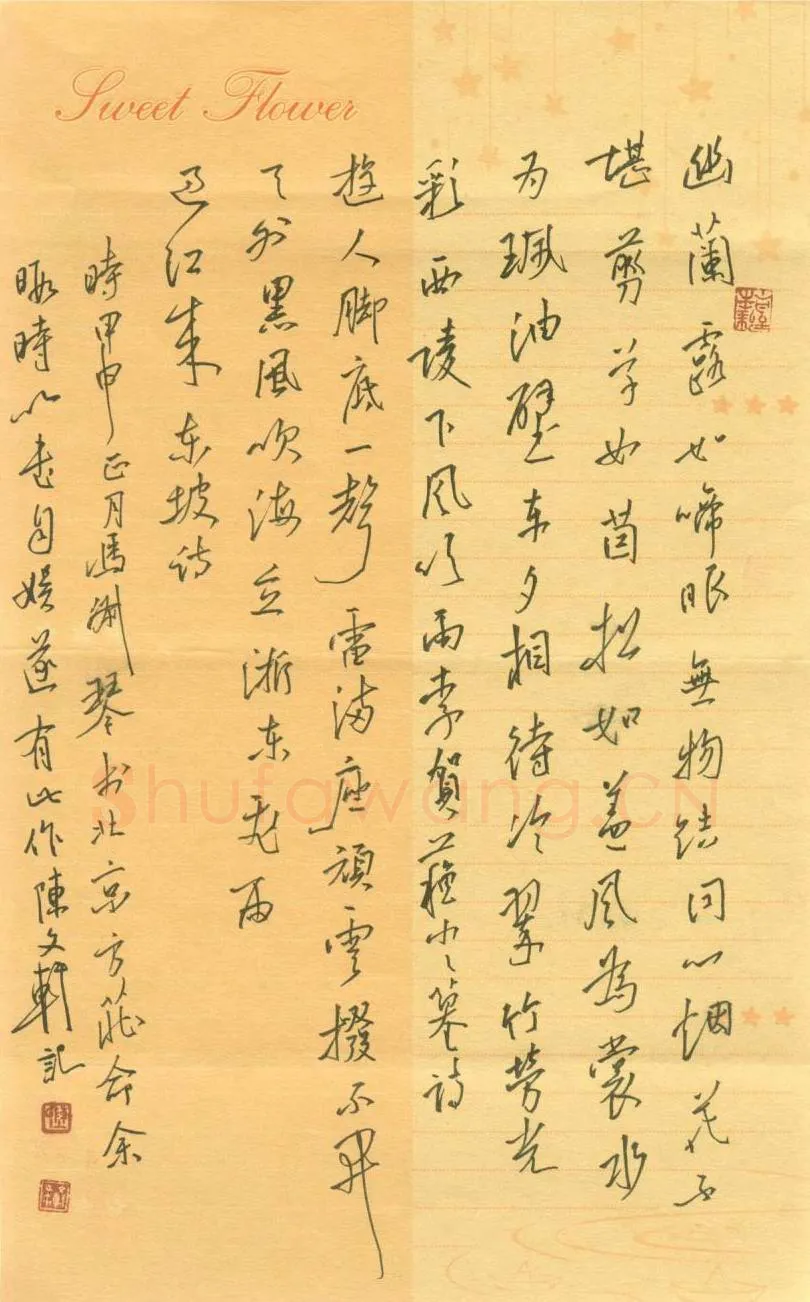 Sweet Flower
幽蘭露如啼眼無物結同心烟花不
堪剪草如茵松如蓋風為裳水
为珮油壁车夕相待冷翠竹勞光
彩西陵下风吹雨李賀蘇小〻墓詩
遊人脚底一聲雷满座頑雲撥不開
天外黑風吹海立浙东飛雨
过江来东坡诗
時甲申正月馮琴书北京方莊命余
暇時以書自娱遂有此作陳文軒記
Shufawang.CN